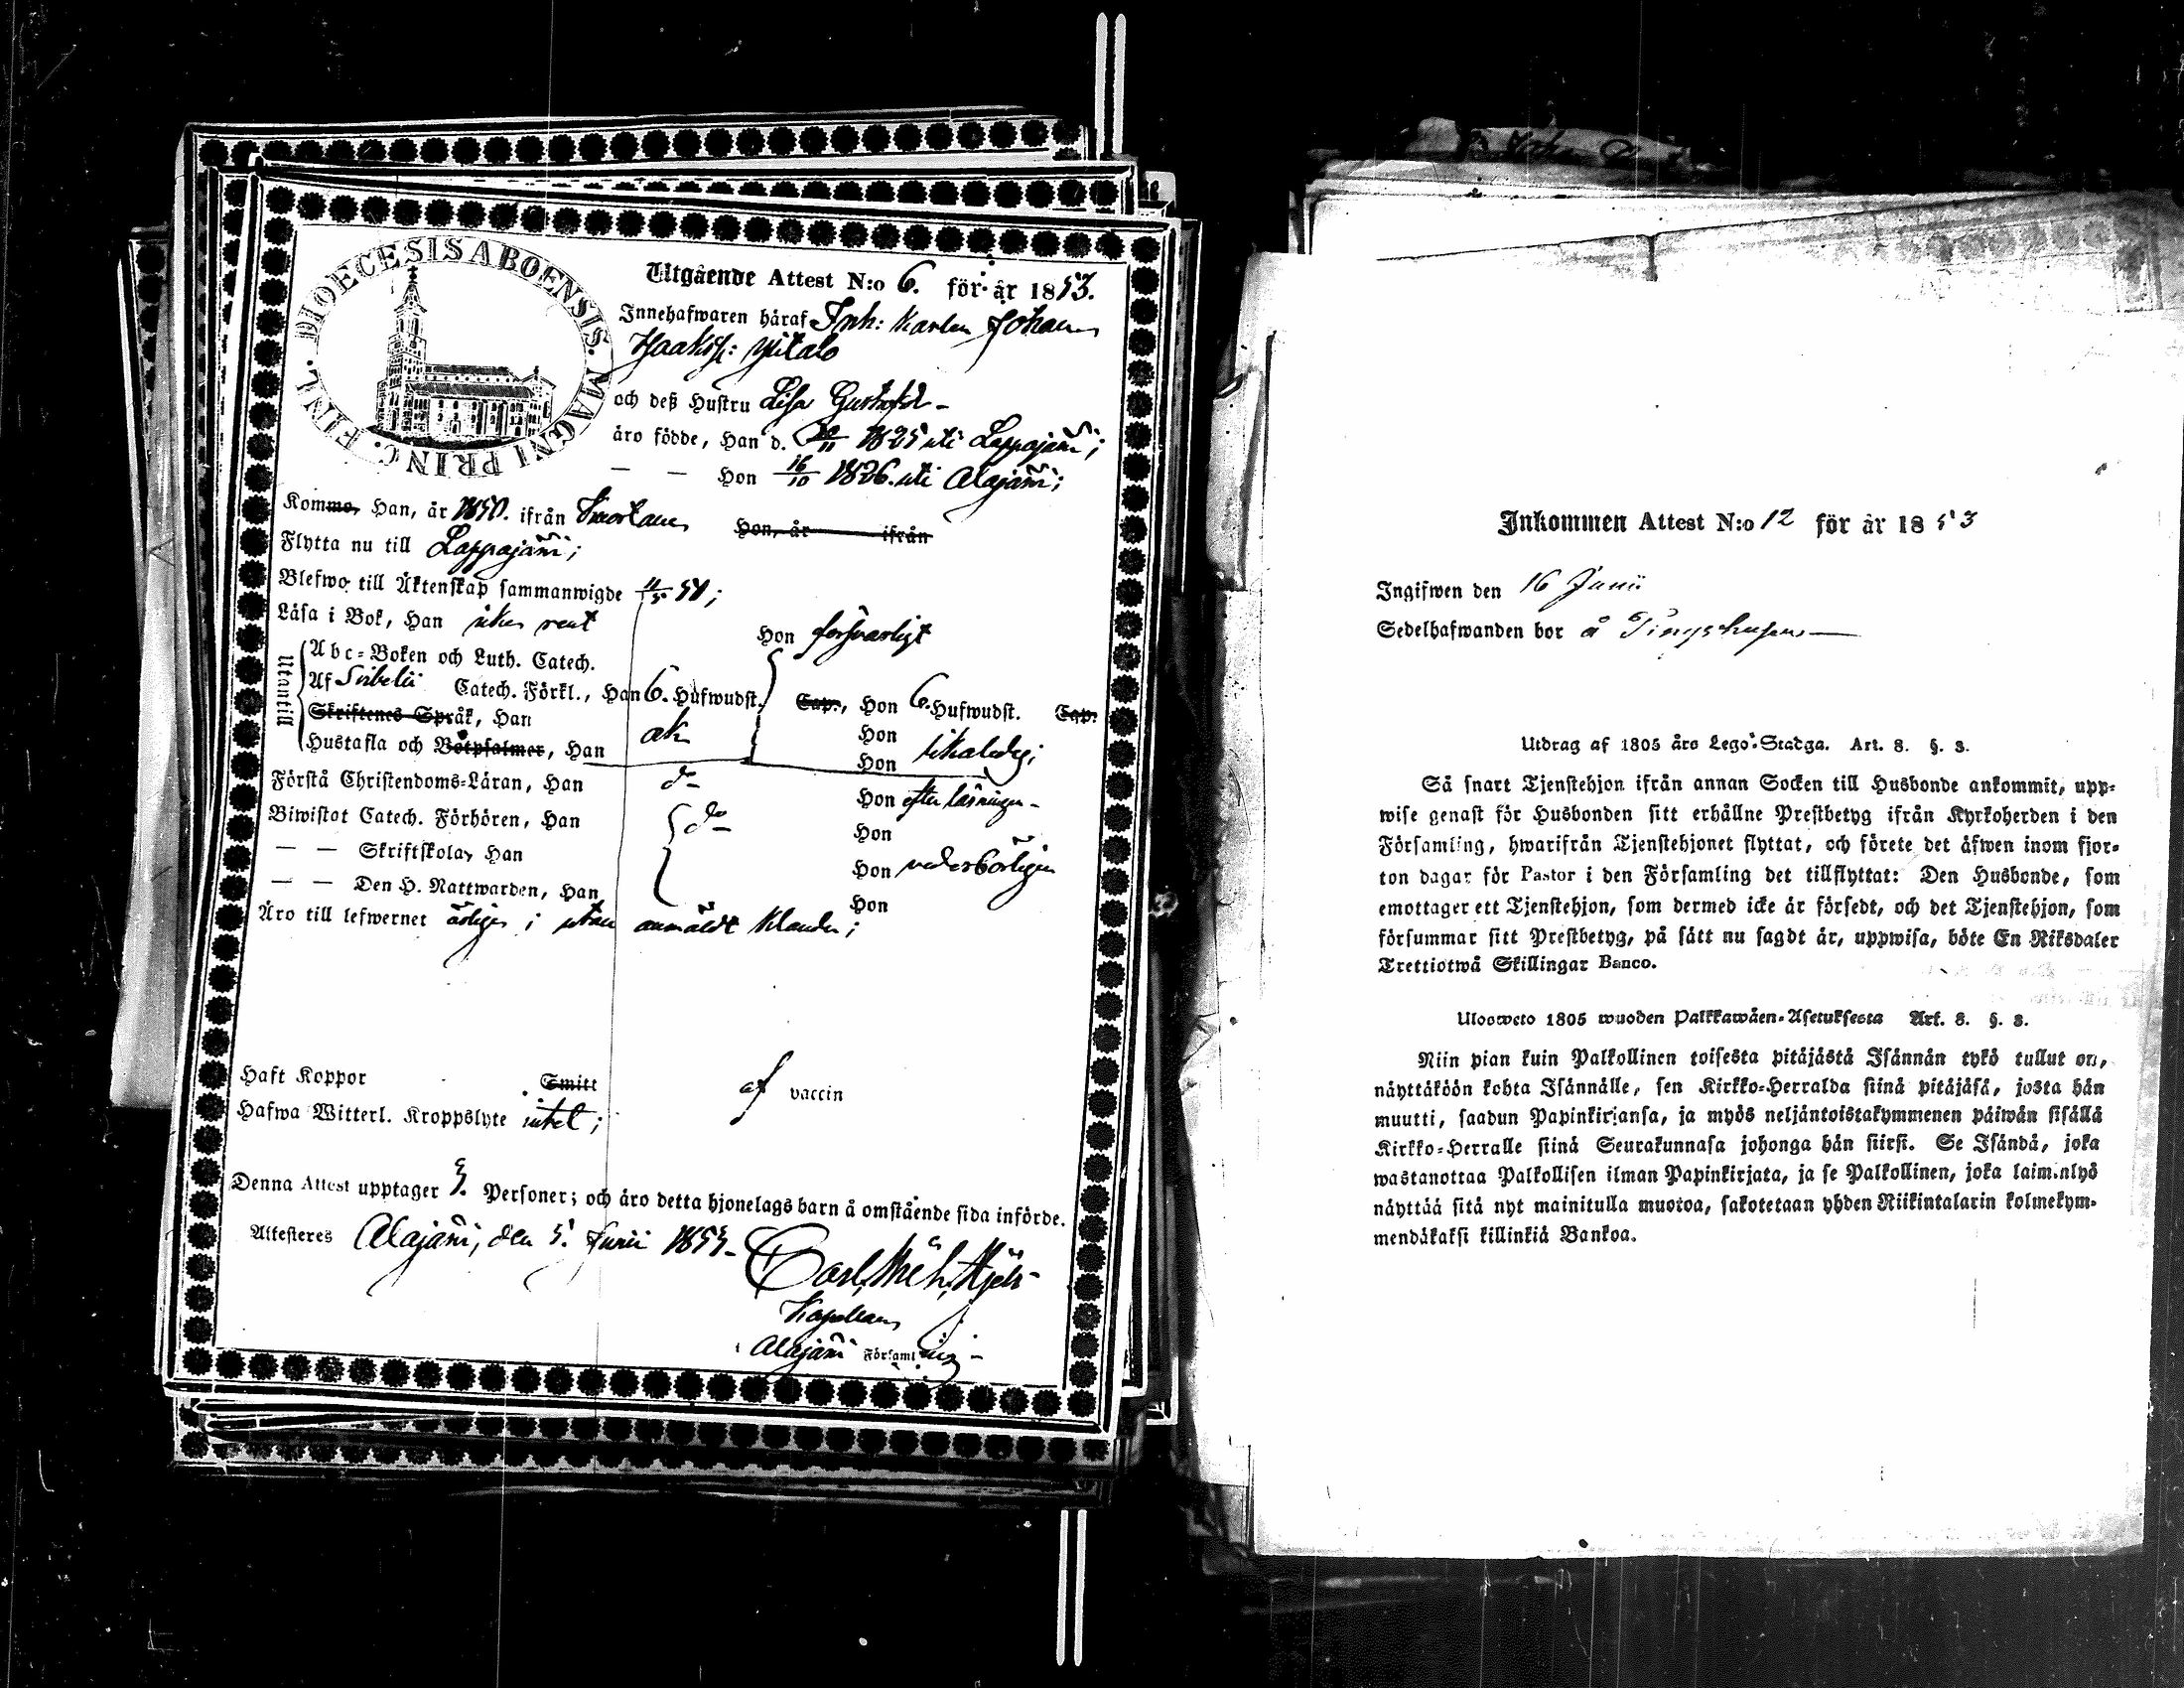 DIOECESIS ABOENSIS. MAGNI PRINC. FINL.
Utgående Attest N:o 6. för år 1853.
Innehafwaren häraf Inh: Karlen Johan
Isaaksf: Ylitalo
och deß Hustru Lisa Gustafsd.
äro födde, Han d. 1825 uti Lappajärvi;
— — Hon 16/10 1826. uti Alajärvi;
Komme, Han, år 1850. ifrån Kuortane Hon, år ifrån
Flytta nu till Lappajärvi;
Blefwo till Äktenskap sammanwigde 50;
Läsa i Bok, Han rent Hon försvarligt
Utantill
Abc-Boken och Luth. Catech.
Af Svebelii Catech. Förkl., Han 6. Hufwudst. Cap., Hon 6. Hufwudst. Cap.
Skriftenes Språk, Han Hon
Hustafla och Botpsalmer, Han Hon likaledes;
Förstå Christendoms-Läran, Han Hon efter läsningen
Biwistat Catech. Förhören, Han Hon
— — Skriftskola, Han Hon vederbörligen
— — Den H. Nattwarden, Han Hon
Äro till lefwernet ärlige; utan anmäldt klander;
Haft Koppor Smitt af vaccin
Hafwa Witterl. Kroppslyte intet;
Denna Attest upptager Personer; och äro detta hjonelags barn å omstående sida införde.
Attesteres Alajärvi, den 5. Junii 1853.
Carl
Kapellan
Alajärvi Församling
Inkommen Attest N:o 12 för år 1853
Ingifwen den 16 Junii
Sedelhafwanden bor å Tingshusen
Utdrag af 1805 års Lego-Stadga. Art. 8. §. 3.
Så snart Tjenstehjon ifrån annan Socken till Husbonde ankommit, upp-
wise genast för Husbonden sitt erhållne Prestbetyg ifrån Kyrkoherden i den
Församling, hwarifrån Tjenstehjonet flyttat, och förete det äfwen inom fjor-
ton dagar för Pastor i den Församling det tillflyttat: Den Husbonde, som
emottager ett Tjenstehjon, som dermed icke är försedt, och det Tjenstehjon, som
försummar sitt Prestbetyg, på sätt nu sagdt är, uppwisa, böte En Riksdaler
Trettiotwå Skillingar Banco.
Ulosweto 1805 wuoden Palkkawäen-Asetuksesta Art. 8. §. 3.
Niin pian kuin Palkollinen toisesta pitäjästä Isännän tykö tullut on,
näyttäköön kohta Isännälle, sen Kirkko-Herralda siinä pitäjäsä, josta hän
muutti, saadun Papinkirjansa, ja myös neljäntoistakymmenen päiwän sisällä
Kirkko-Herralle siinä Seurakunnasa johonga hän siirsi. Se Isändä, joka
wastanottaa Palkollisen ilman Papinkirjata, ja se Palkollinen, joka laiminlyö
näyttää sitä nyt mainitulla muotoa, sakotetaan yhden Riikintalarin kolmekym-
mendäkaksi killinkiä Bankoa.